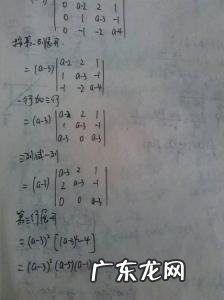 | 0 a-2 2 1 |
| 0 1 a-3 -1 |
| 0 -1 -2 a-4 |
按第一列展开
= (a-3) | a-2 2 1 |
| 1 a-3 -1 |
| -1 -2 a-4 |
二行加三行
= (a-3) | a-2 2 1 |
| 1 a-3 -1 |
| a-3 0 a-3 |
三列减一列
= (a-3) | a-3 2 1 |
| 2 a-3 -1 |
| 0 0 a-3 |
第三行展开
= (a-3)² [(a-3)²-4]
= (a-3)² (a-5)(a-1)
广东龙网